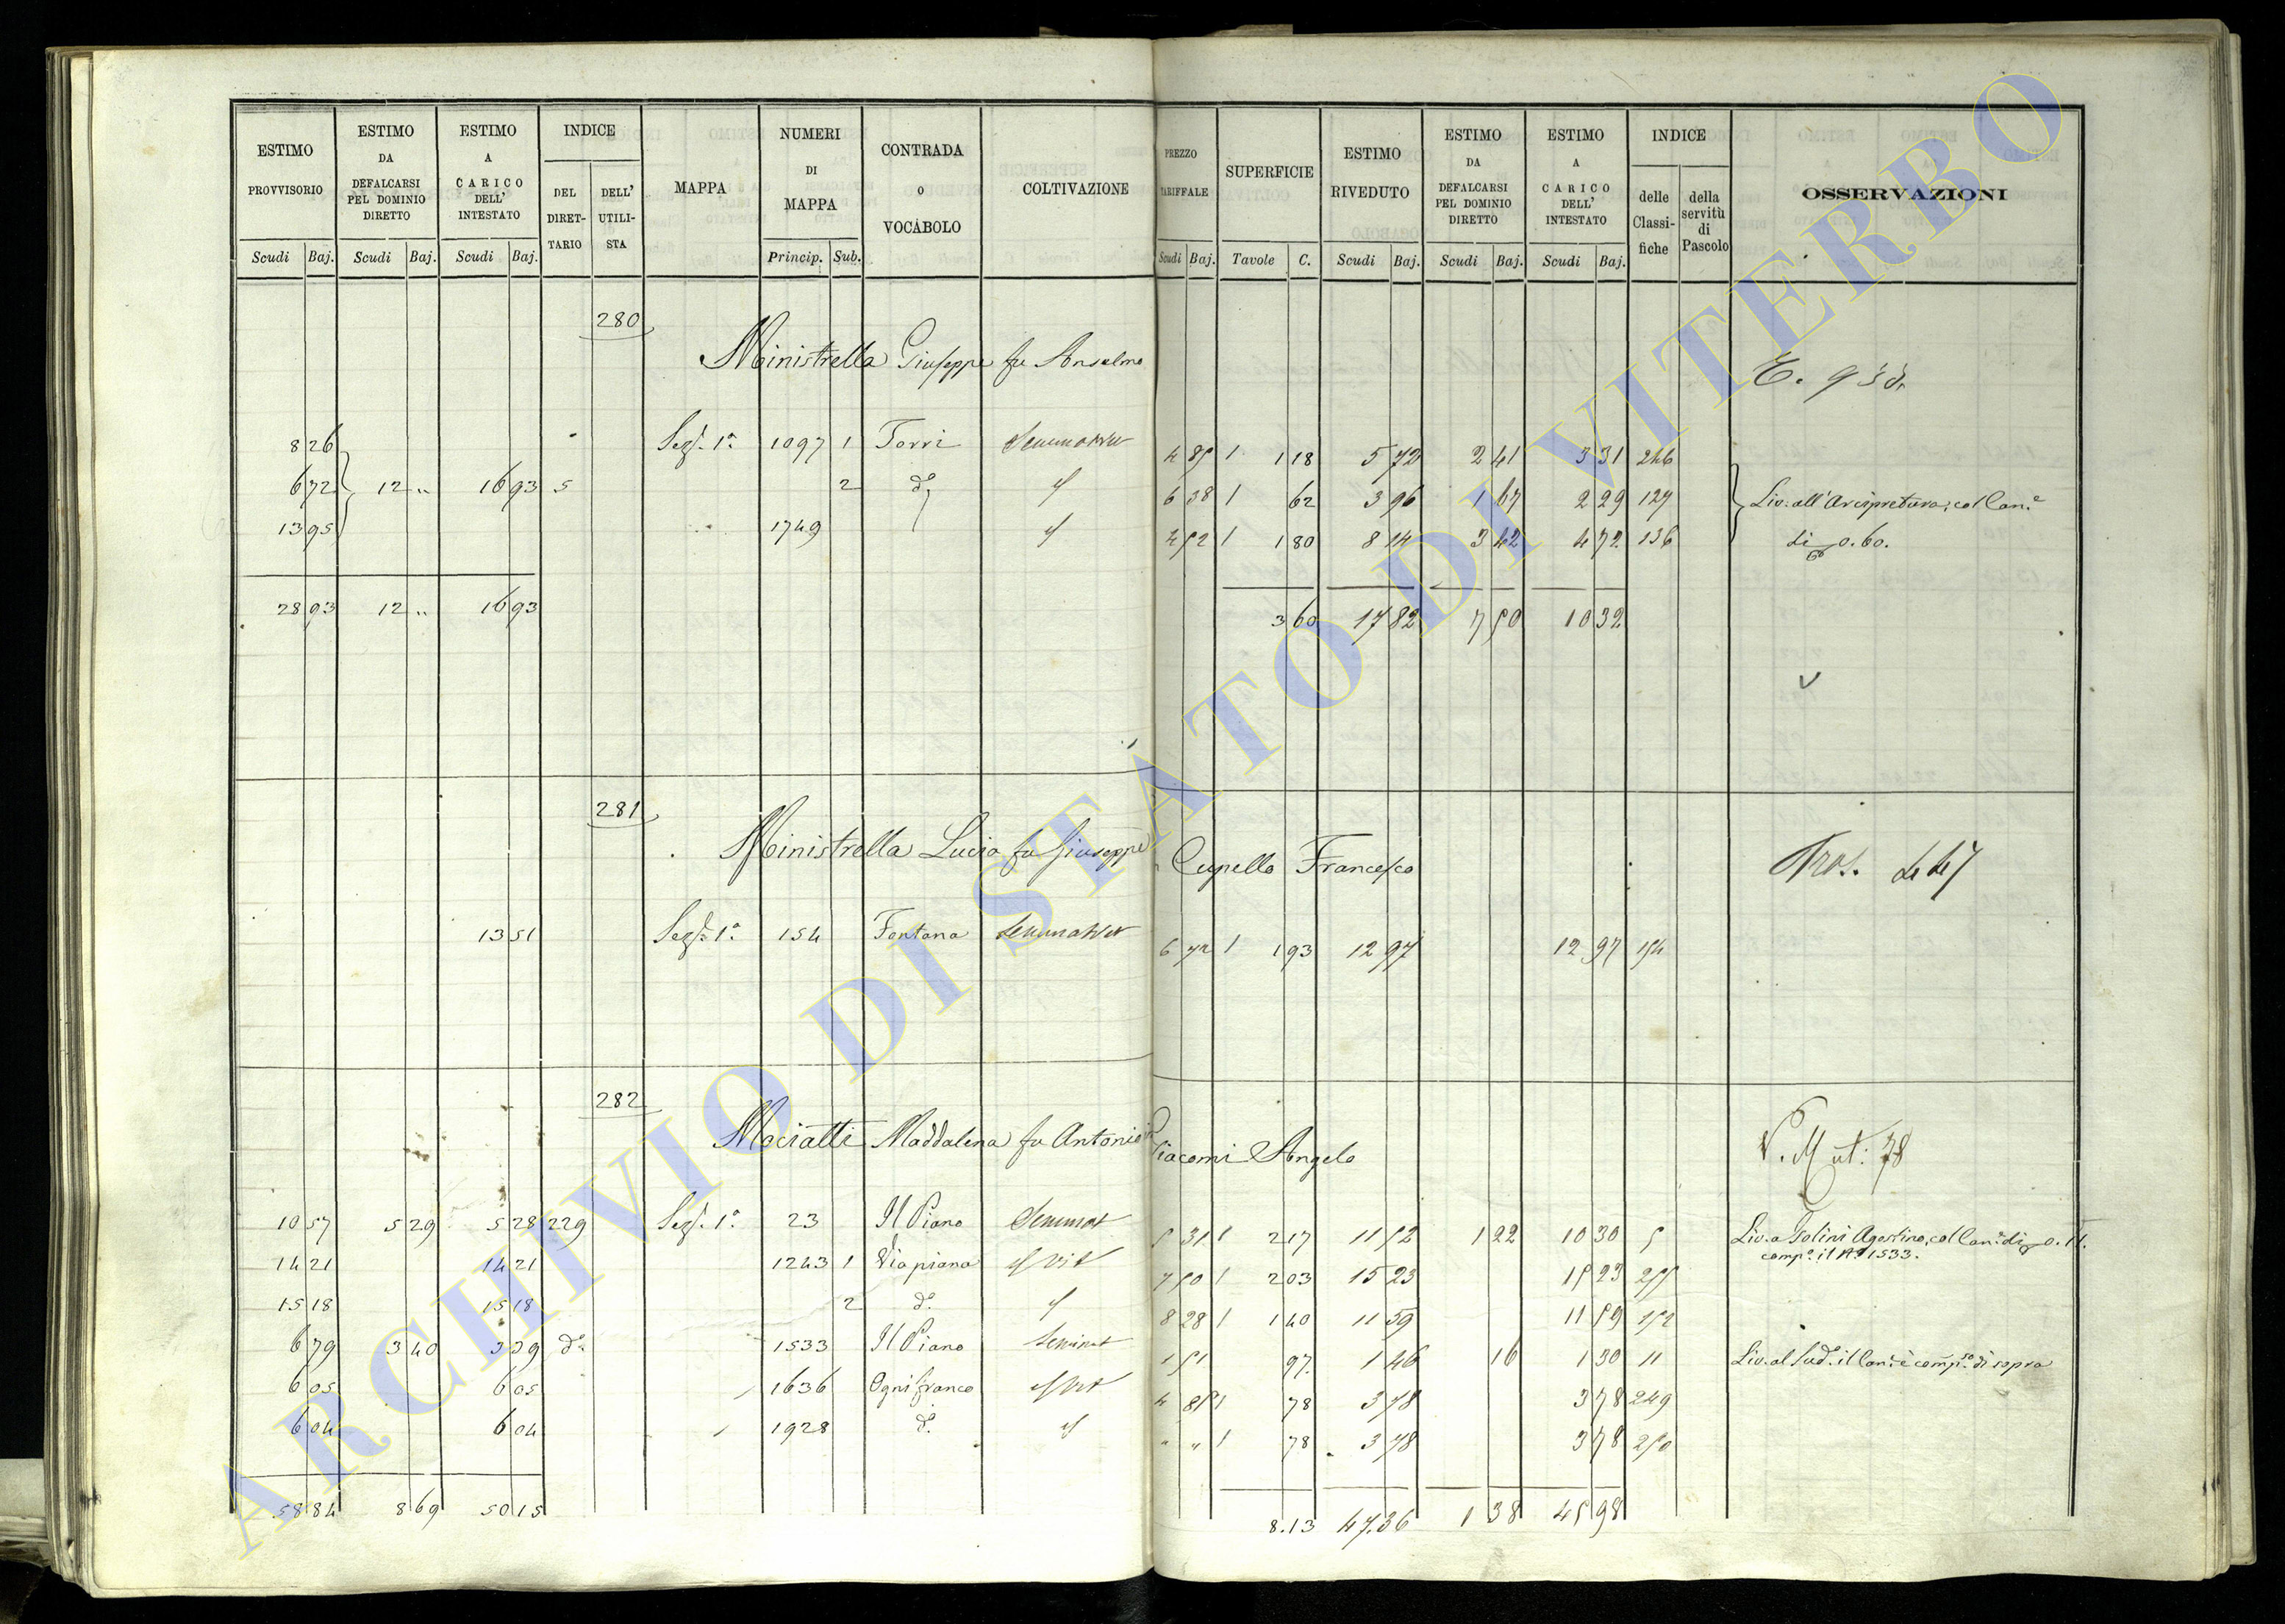 ESTIMO PROVVISORIO | ESTIMO DA DEFALCARSI PEL DOMINIO DIRETTO | ESTIMO A CARICO DELL' INTESTATO | INDICE DEL DIRET-TARIO | DELL' UTILI-STA | MAPPA | NUMERI DI MAPPA | CONTRADA O VOCÀBOLO | COLTIVAZIONE | PREZZO TARIFFALE | SUPERFICIE | ESTIMO RIVEDUTO | ESTIMO DA DEFALCARSI PEL DOMINIO DIRETTO | ESTIMO A CARICO DELL' INTESTATO | INDICE delle Classi-fiche | della servitù di Pascolo | OSSERVAZIONI
Scudi Baj. Scudi Baj. Scudi Baj. Princip. Sub. Scudi Baj. Tavole C. Scudi Baj. Scudi Baj. Scudi Baj.
280
Ministrella Giuseppe fu Anselmo
8 26 Sez. 1a 1097 1 Torri 4 85 1 1 18 5 72 2 41 3 31 246
6 72 12 " 16 93 5 2 do 6 38 1 62 3 96 1 67 2 29 127 Liv. all'Arcipretura, col Can.e
13 95 1749 4 52 1 1 80 8 14 3 42 4 72 136 di 0.60.
28 93 12 " 16 93 3 60 17 82 7 50 10 32
281
Ministrella Lucia fu Giuseppe in Cupello Francesco
13 51 Sez. 1a 154 Fontana 6 72 1 1 93 12 97 12 97 154
282
Mociatti Maddalena fu Antonio in Giacomi Angelo
V. Mut: 78
10 57 5 29 5 28 229 Sez. 1a 23 Il Piano Seminat 5 31 1 2 17 11 52 1 22 10 30 5 Liv. a Golini Agostino, col Can.e di 0.11.
comp.o il No 1533.
14 21 14 21 1243 1 Via piana 7 50 1 2 03 15 23 15 23 255
15 18 15 18 2 do 8 28 1 1 40 11 59 11 59 152
6 79 3 40 3 39 do 1533 Il Piano Seminat 1 51 97 1 46 16 1 30 11 Liv. al Sud.o il Can.e è comp.so di sopra
6 05 6 05 1636 Ognifranco 4 85 1 78 3 78 3 78 249
6 04 6 04 1928 do " " 1 78 3 78 3 78 250
58 84 8 69 50 15 8.13 47.36 1 38 45 98
ARCHIVIO DI STATO DI VITERBO